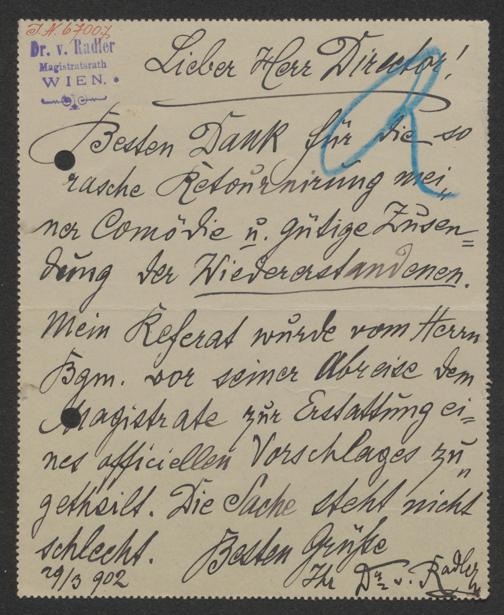 J.N. 67007
Dr. v. Radler
Magistratsrath
WIEN.
Lieber Herr Director!
Besten Dank für die so
rasche Retournirung mei„
ner Comödie u. gütige Zusen=
dung der Wiedererstandenen.
Mein Referat wurde vom Herrn
Bgm. vor seiner Abreise dem
Magistrate zur Erstattung ei=
nes officiellen Vorschlages zu„
getheilt. Die Sache steht nicht
schlecht. Besten Grüße
29/3 902 Ihr Dr. v. Radler